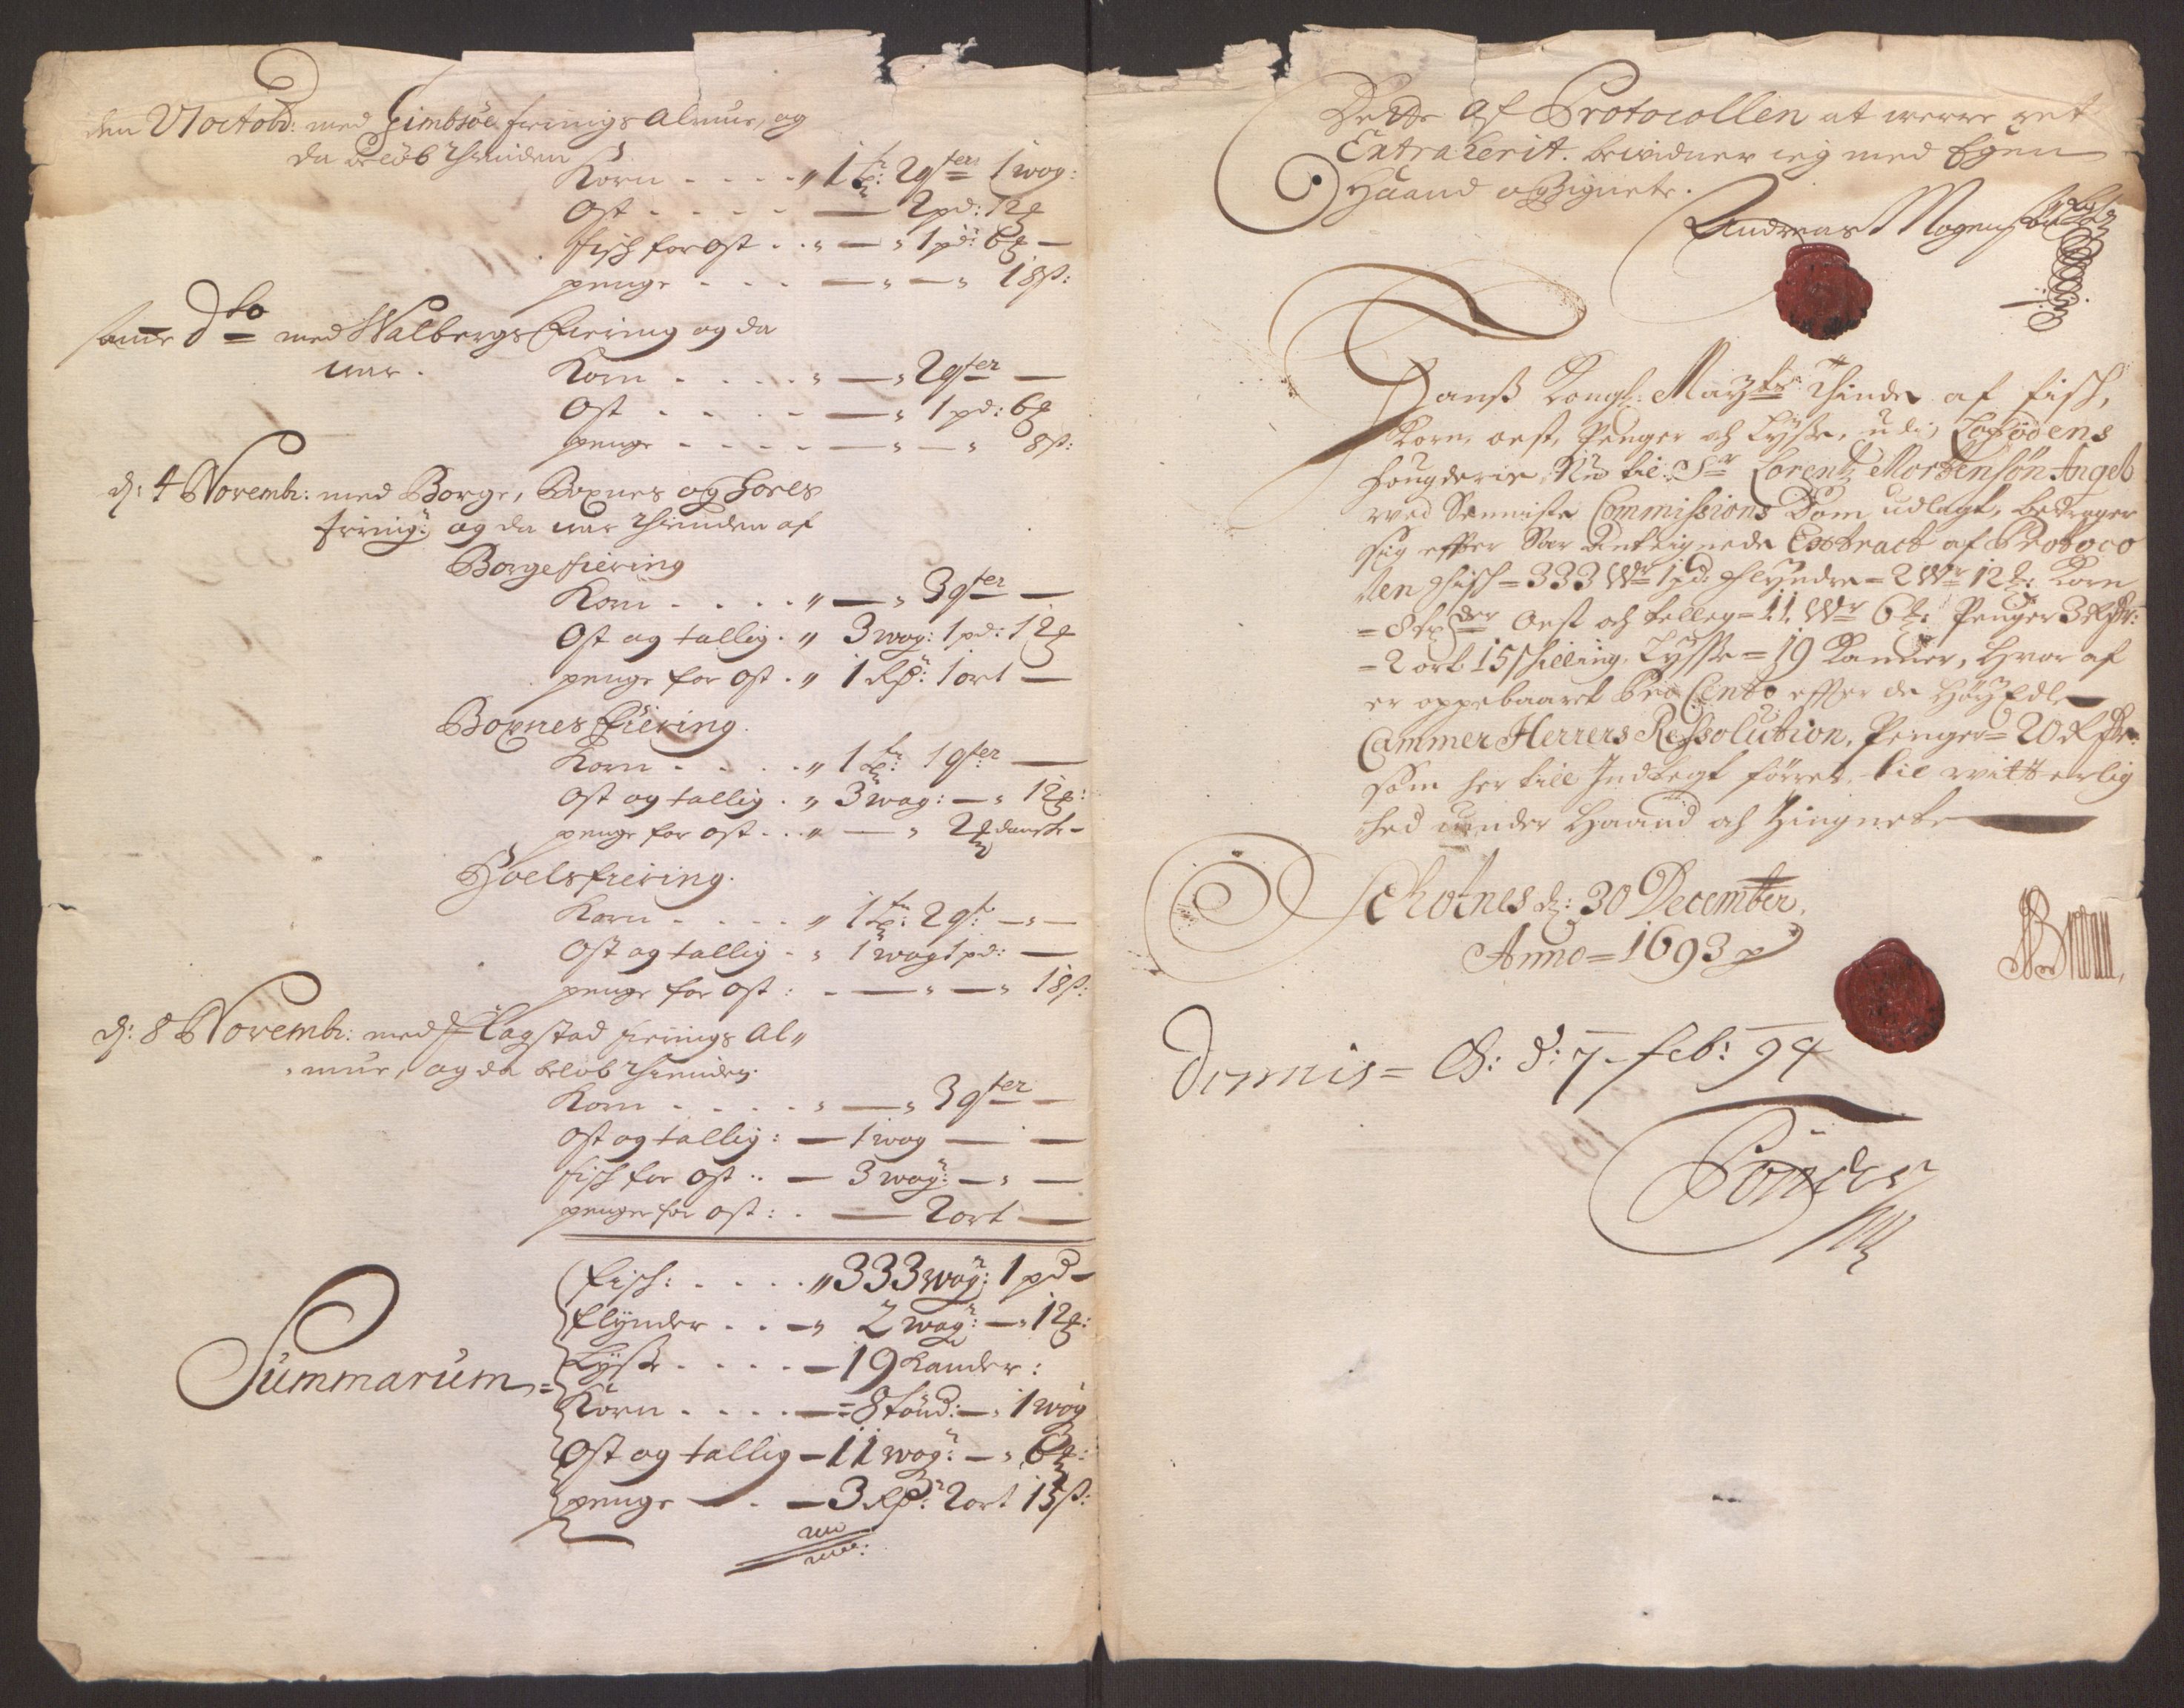 den 21 octobr: med Gimbsöe fierings Almue, og
da beløb Thienden
Korn - - - - " 1 tr: 2 qter 1 wog:
Ost - - - - — 2 pd: 12 #
fisch for ost - - " — " 1 pd: 6 # —
penge - - - — " — " 18 ß:
same dto med Walbergs fiering og da
uar.
Korn - - - - " — " 2 qter —
Ost - - - - — " 1 pd: 6 #
penge - - - - — " — " 8 ß:
d: 4 Novembr: med Borge, Boxnes og Hoels
friing: og da uar Thienden af
Borge fiering
Korn - - - - " — " 3 qter —
Ost og tallig. " 3 wog: 1 pd: 12 #
penge for Ost. " 1 Rß: 1 ort —
Boxnes fiering.
Korn - - - - " 1 tr: 1 qter —
Ost og tallig. " 3 wog: — " 12 #:
penge for ost - - " — " 2 # danske -
Hoels fiering.
Korn - - - - " 1 tr: 2 qt: — " —
Ost og tallig - " 1 wog 1 pd: —
penge for Ost: - — " — " 18 ß:
d: 8 Novembr: med Flagstad fierings Al"
mue, og da beløb Thienden.
Korn - - - - " — " 3 qter —
Ost og tallig: — 1 wog — —
fisch for Ost - - — 3 wog: — " —
penger for Ost: - — 2 ort —
Summarum =
fisch: - - - - " 333 wog: 1 pd —
flynder - - - " 2 wog: — " 12 #:
Tysse - - - - — 19 kander:
Korn - - - - — = 8 tönd: — " 1 wog
Ost og tallig — 11 wog: — " 6 #:
penge — - — 3 Rß: 2 ort 15 ß:
Dette af Protocollen at werre ret
Extraherit. bewidner ieg med Egen
Haand og Zignete.
Andreas Mogensøn
Hanß Kongl: Mayts: Thiende af fisch,
Korn, oest, Penger och Tysse, udi Lofödens
fougderie, Nu til Sr Lorentz Mortensön Angel
wed Seeniste Commissions Dom udlagt, bedrager
sig effter Var Anteignede Extract af Protoco
len fisch = 333 Wr 1 pd: flyndre = 2 Wr 12 #: Korn
= 8 tönder Oest och telleg = 11. Wr 6 #: Penger 3 Rdr:
= 2 ort 15 schilling, Tysse = 19 Kander, Hvor af
er oppebaaret Pro Cento effter de Höy Edle
Cammer Herrers Ressolution, Penger = 20 Rdr:
som her till Indlegt förres, til witterlig
hed under Haand och Zingnete
Schotnes d: 30 December.
Anno = 1693
Dennis = d: 7 - feb: 94